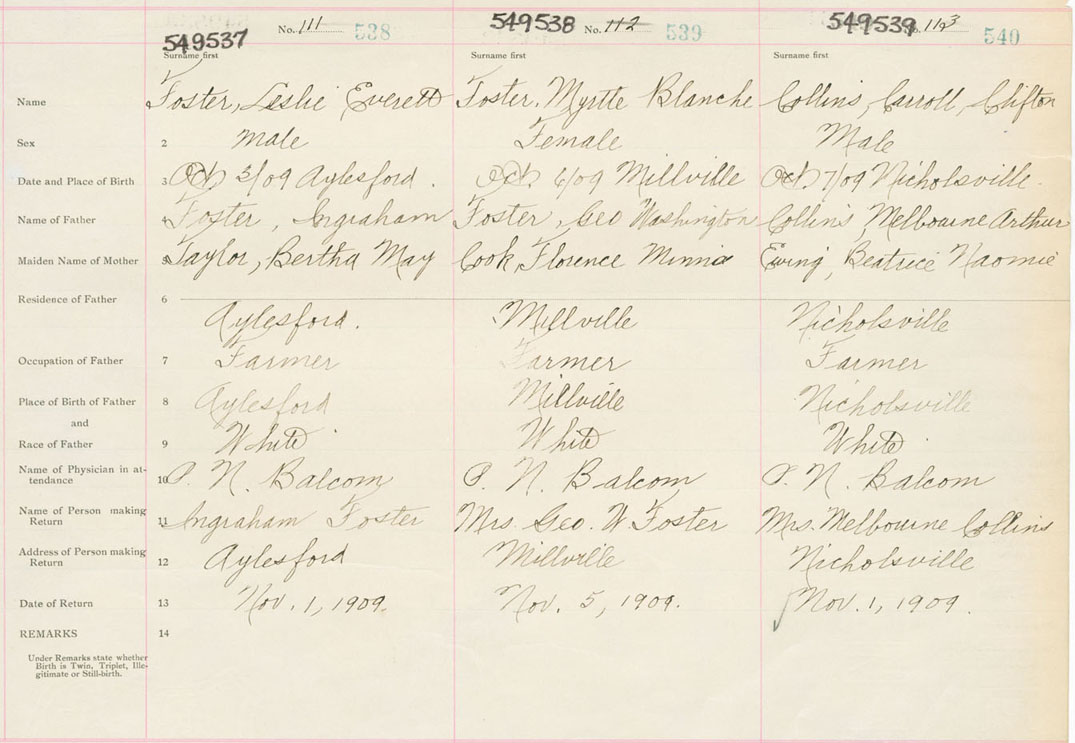 549537 No. 111 538 549538 No. 112 539 549539 No. 113 540
Surname first Surname first Surname first
Name Foster, Leslie Everett Foster, Myrtle Blanche Collins, Carroll, Clifton
Sex 2 Male Female Male
Date and Place of Birth 3 Oct 3/09 Aylesford. Oct 6/09 Millville Oct 7/09 Nicholsville.
Name of Father 4 Foster, Ingraham Foster, Geo Washington Collins, Melbourne Arthur
Maiden Name of Mother 5 Taylor, Bertha May Cook, Florence Minnie Ewing, Beatrice Naomie
Residence of Father 6
Aylesford. Millville Nicholsville
Occupation of Father 7 Farmer Farmer Farmer
Place of Birth of Father 8 Aylesford Millville Nicholsville
and
Race of Father 9 White White White
Name of Physician in at-
tendance 10 P. N. Balcom P. N. Balcom P. N. Balcom
Name of Person making
Return 11 Ingraham Foster Mrs. Geo. W Foster Mrs. Melbourne Collins
Address of Person making
Return 12 Aylesford Millville Nicholsville
Date of Return 13 Nov. 1, 1909. Nov. 5, 1909. Nov. 1, 1909.
REMARKS 14
Under Remarks state whether
Birth is Twin, Triplet, Ille-
gitimate or Still-birth.